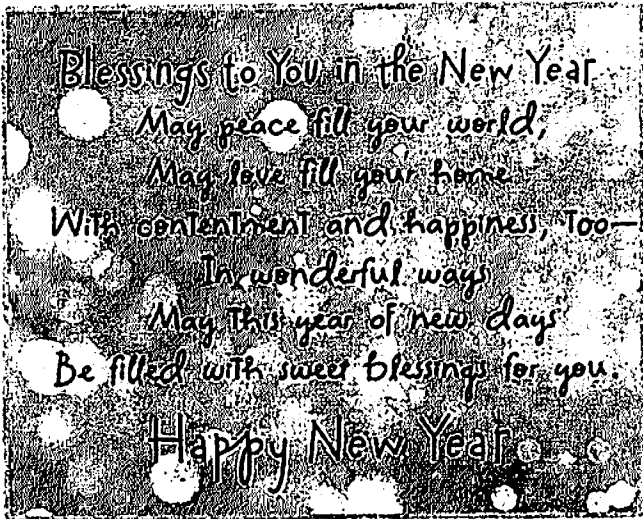 Blessings to You in the New Year
May peace fill your world,
May love fill your home
With contentment and happiness, too—
In wonderful ways
May this year of new days
Be filled with sweet blessings for you.
Happy New Year